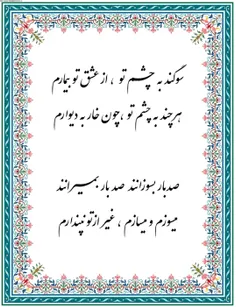 سوگند به چشم تو ، از عشق تو بیمارم
هرچند به چشم تو ،چون خار به دیوارم
صدبار بسوزانند صد بار بمیرانند
میسوزم و میسازم ، غیر ازتو نپندارم